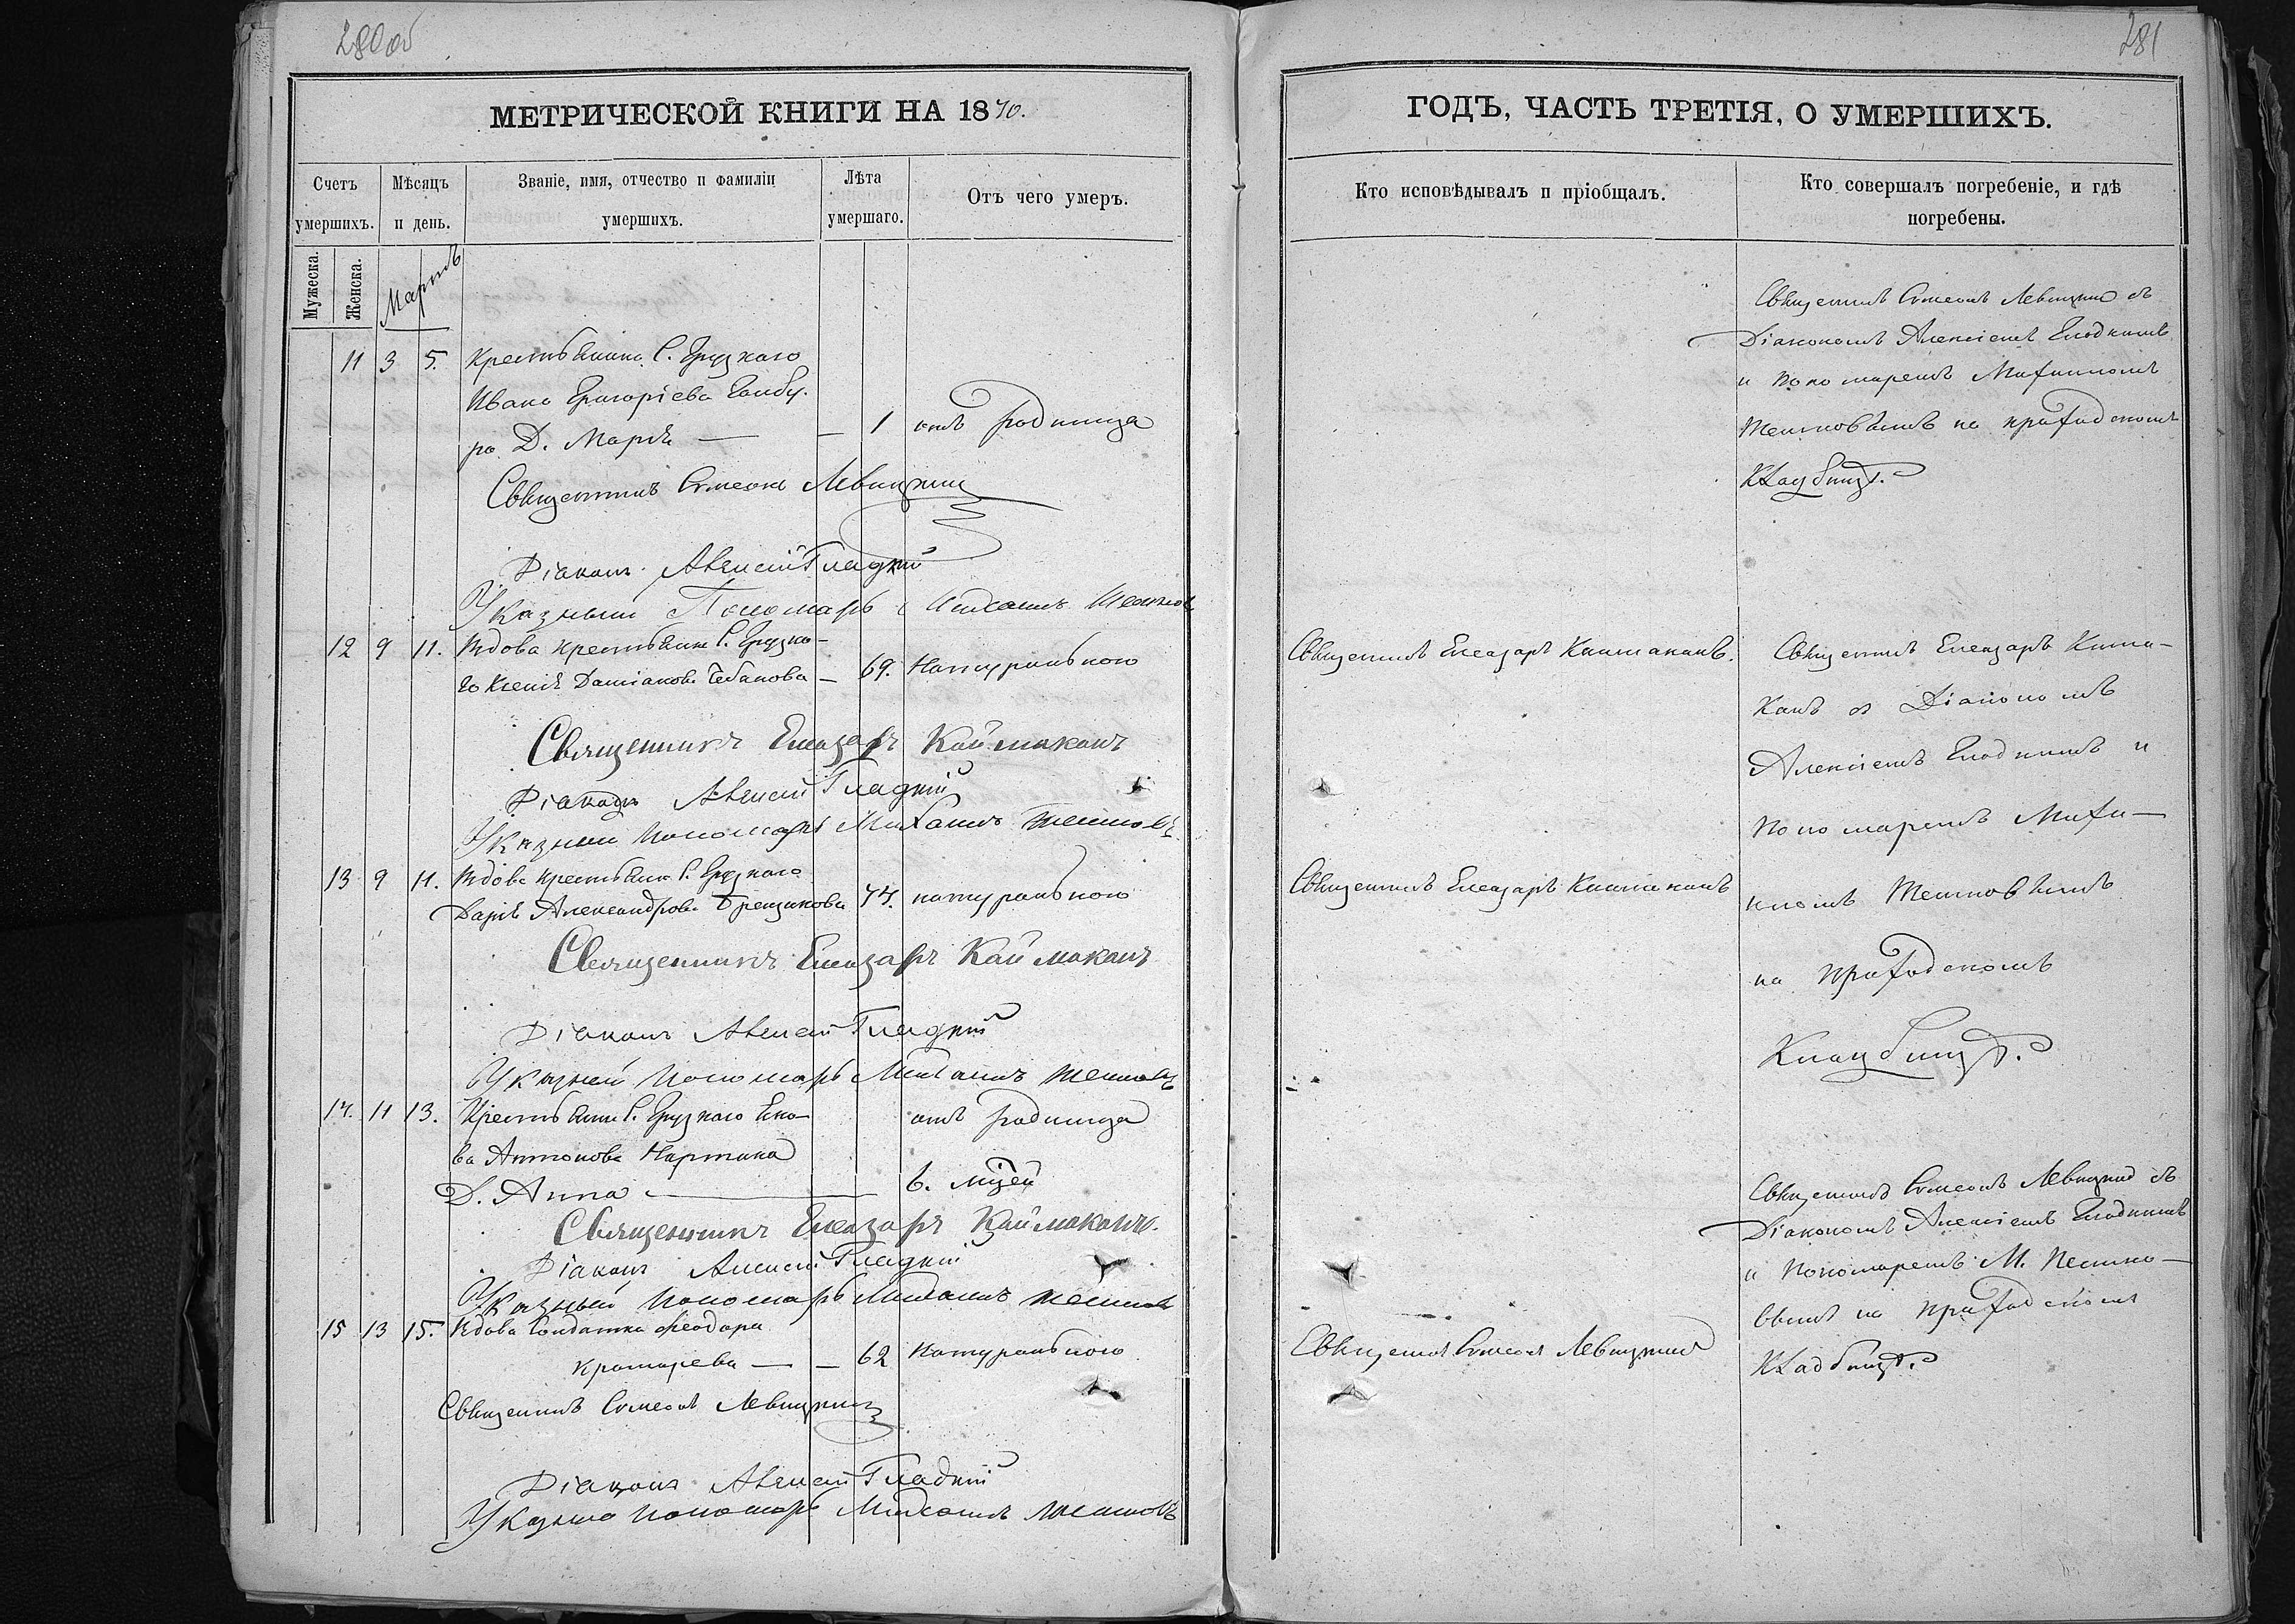 280об
МЕТРИЧЕСКОЙ КНИГИ НА 1870.
Счетъ умершихъ.
Мѣсяцъ и день.
Званіе, имя, отчество и фамиліи умершихъ.
Лѣта умершаго.
Отъ чего умеръ.
Мужеска.
Женска.
Мартъ
11 3 5. Крестьянина С. Грузкаго
Ивана Григоріева
ра Д. Марія — — 1 отъ родимца
Священникъ Симеонъ Левицкий
Діаконъ Алексій Гладкій
Указный Пономарь Михаилъ
12 9 11. Вдова крестьянка С. Грузка-
го Ксенія Даміанова Чебанова — 69. Натуральною
Священникъ Елеазаръ Каймаканъ
Діаконъ Алексій Гладкій
Указный Пономарь Михаилъ
13 9 11. Вдова крестьянка С. Грузкаго
Дарія Александрова 74. натуральною
Священникъ Елеазаръ Каймаканъ
Діаконъ Алексій Гладкій
Указный Пономарь Михаилъ
14. 11 13. Крестьянина С. Грузкаго
ва Антонова отъ родимца
Д. Анна — 6. мцей
Священникъ Елеазаръ Каймаканъ.
Діаконъ Алексій Гладкій
Указный Пономарь Михаилъ
15 13 15. Вдова Солдатка Ѳеодора
— — 62 Натуральною
Священникъ Симеонъ Левицкий
Діаконъ Алексій Гладкій
Указный Пономарь Михаилъ
281
ГОДЪ, ЧАСТЬ ТРЕТІЯ, О УМЕРШИХЪ.
Кто исповѣдывалъ и пріобщалъ.
Кто совершалъ погребеніе, и гдѣ погребены.
Священникъ Симеонъ Левицкий съ
Діакономъ Алексіемъ Гладкимъ
и пономаремъ Михаиломъ
на приходскомъ
кладбищѣ.
Священникъ Елеазаръ Каймаканъ.
Священникъ Елеазаръ Кайма-
канъ съ Діакономъ
Алексіемъ Гладкимъ и
пономаремъ Миха-
Священникъ Елеазаръ Каймаканъ
иломъ
на приходскомъ
Кладбищѣ.
Священникъ Симеонъ Левицкий съ
Діакономъ Алексіемъ Гладкимъ
и Пономаремъ М.
на приходскомъ
Священникъ Симеонъ Левицкий
Кладбищѣ.